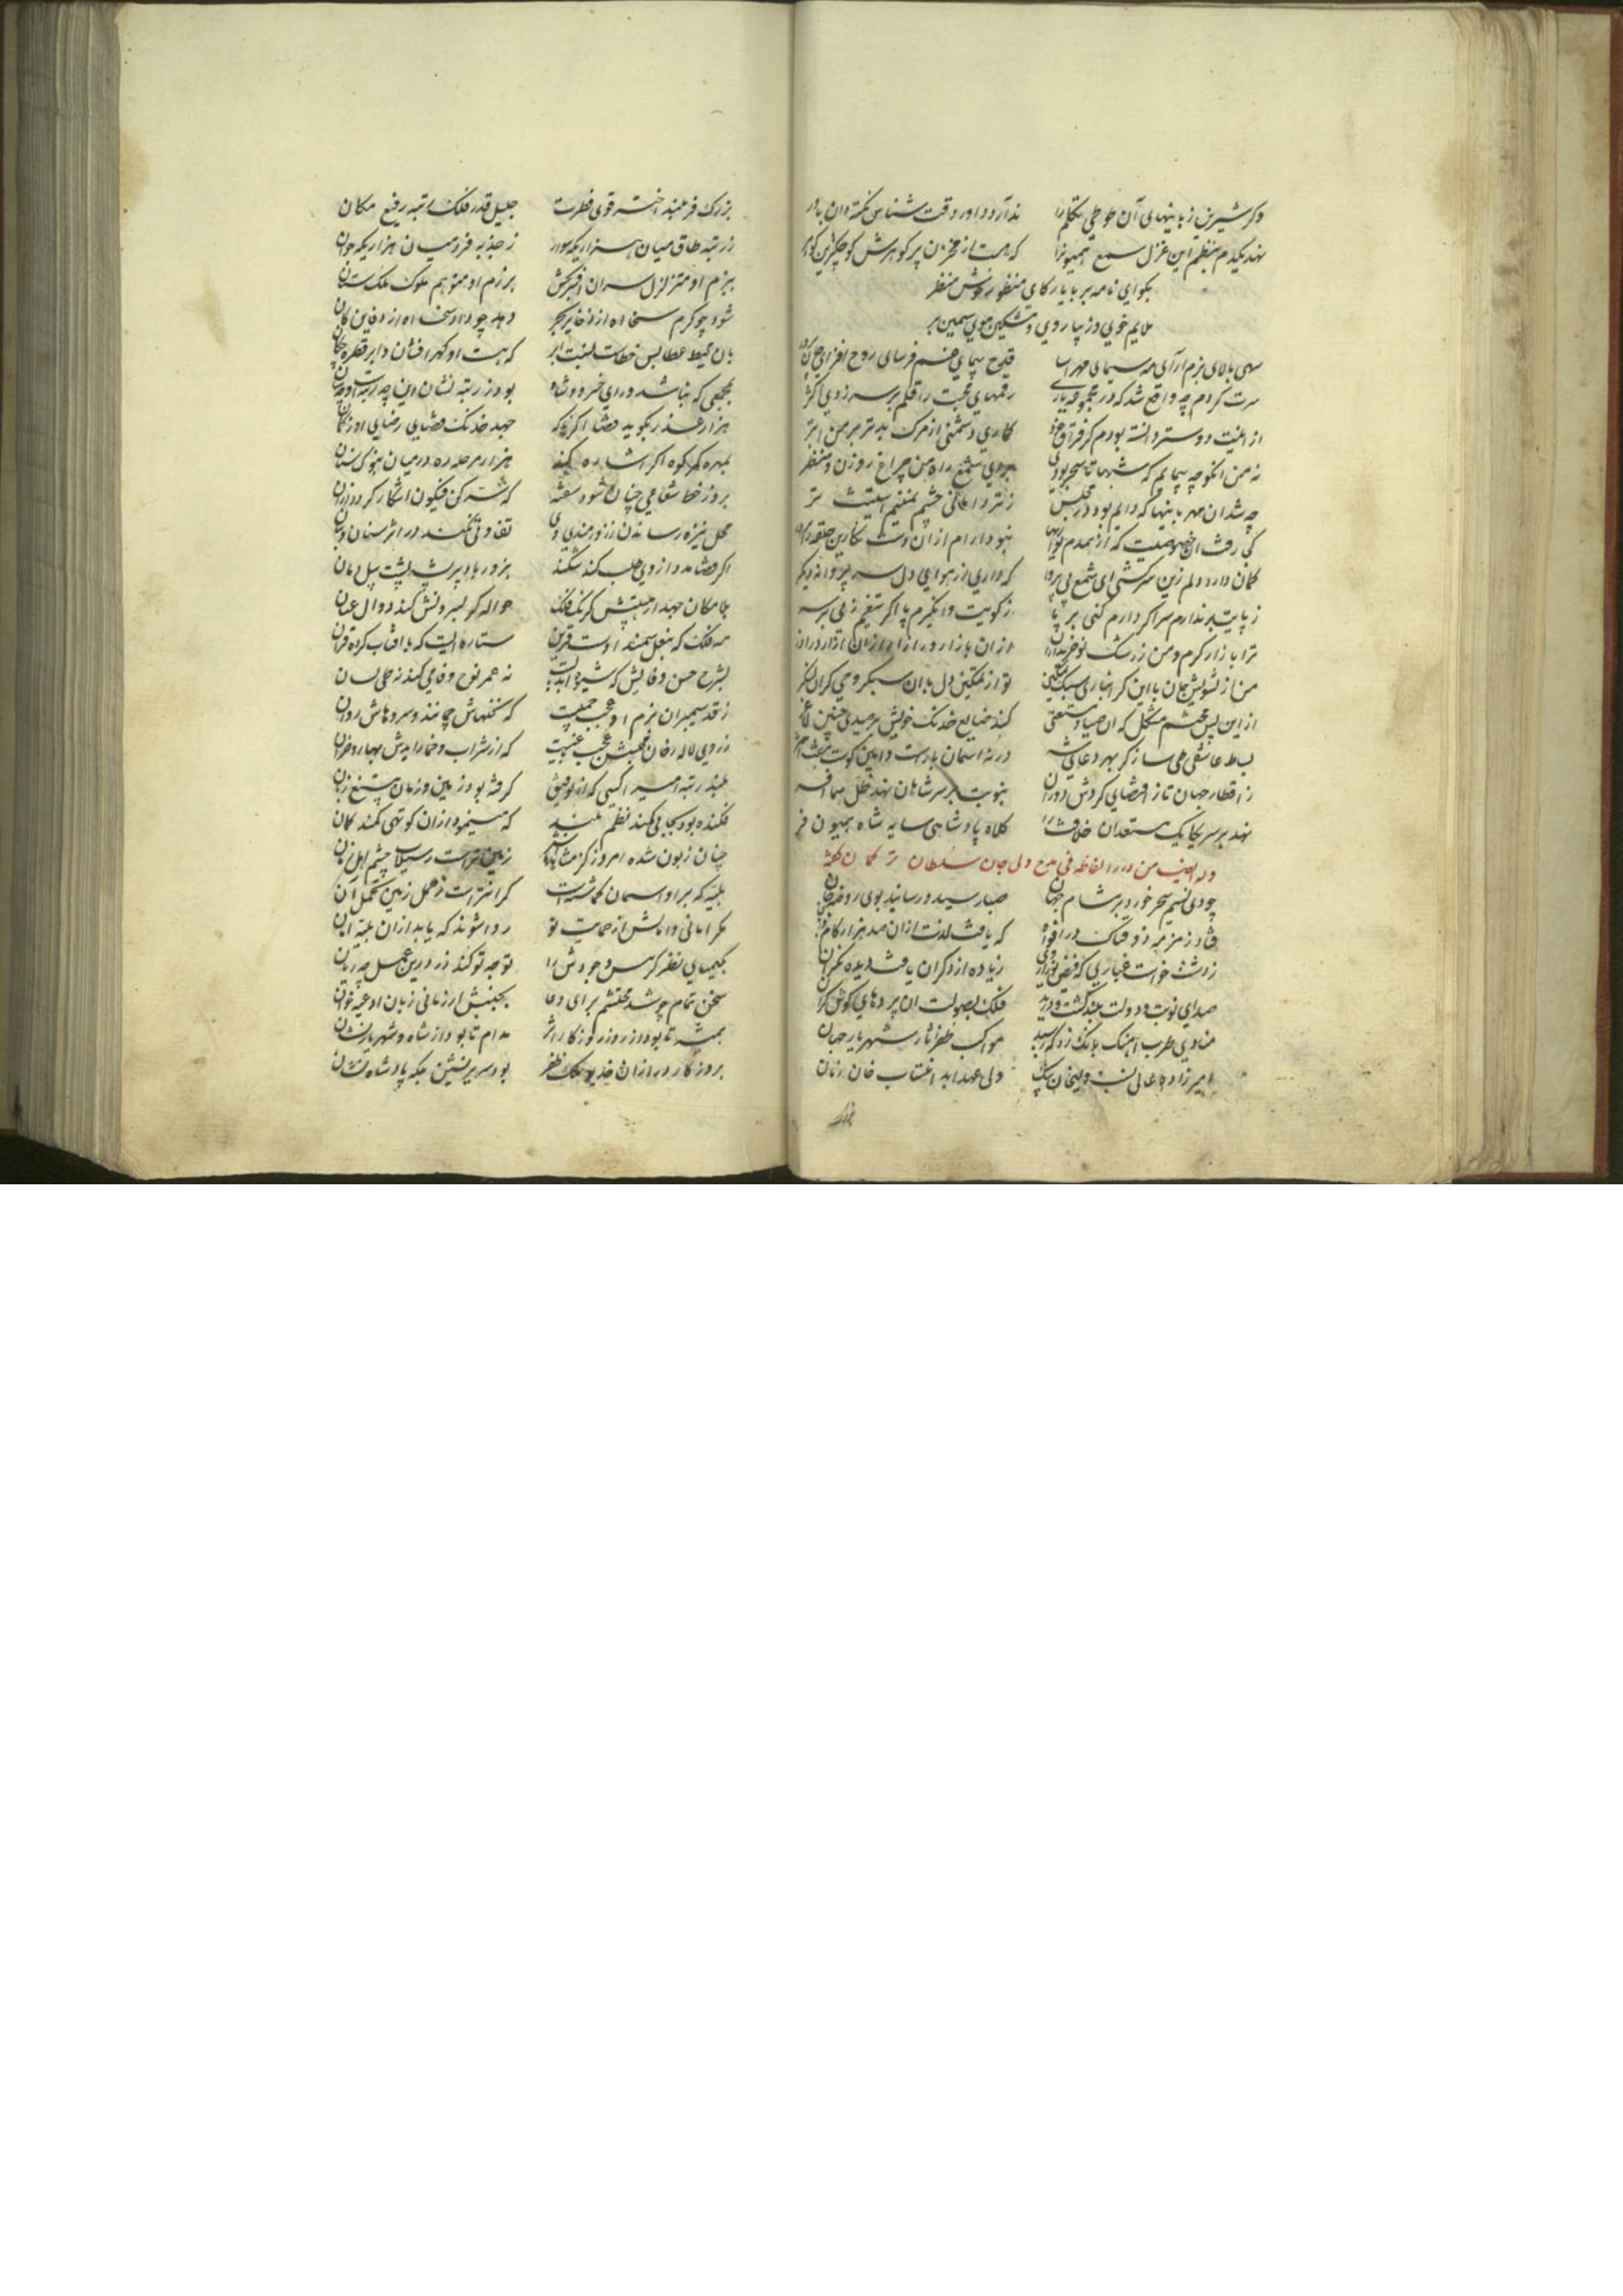 دکر شیرین زبانیهای آن طوطی تکلم را ندارد داور دقت شناس نکته دان باور
نهد یکدم منظم این غزل سمع همیونرا که هست از مخزن پر کوهرش کوچکترین کوهر
بکو ای نامه بر با یار کای منظور خوش منظر
ملایم خوی و زیبا روی و مشکین موی سیمین بر
سهی بالای بزم آرای مه سیمای مهر اسا قدح پیمای غم فرسای روح افزای جان پرور
سرت کردم چه واقع شد که در مجموعه یاری رقمهای محبت را قلم بر سر زدی اکثر
از اهلیت دوستر دانسته بودم کز فراق خود کماری دشمنی از مرک بدتر بر من ابتر
نه من انم که می پیمایم که شبها تا سحر بودی بروی شمع راه من چراغ روزن و منظر
چه شد ان مهربانیها که دایم بود در مجلس ز تردامانی چشم منغیم استینت تر
کجا رفت ان خصوصیت که از همدم نوازیها نبود ارام از ان دست نکارین حلقه را بر در
کمان دارد دلم زین سرکشی ای شمع بی پروا که داری از هوایی دل سر پروانه دیکر
ز پایت بر ندارم سر اکر دارم کنی بر پا ز کویت وا نکیرم پا اکر تیغم زنی بر سر
ترا بازار کرم و من ز رشک نو خریداران از ان بازار در ازار از ان ازار در اذر
من از تشویش جان با این کرانباری سبک تمکین تو از تمکین دل با ان سبکروحی کران لنکر
از این پس محتشم مشکل که ان صیاد مستغنی کند ضایع خدنک خویش بر صیدی چنین لاغر
بساط عاشقی طی ساز کز بهر دعای شه در نه اسمان بازست و امین کوست هفت اختر
ز اقطار جهان تا ز اقتضای کردش دوران بنوبت بر سر شاهان نهد ظل هما افسر
نهد بر سر یکایک مستعدان خلافت را کلاه پادشاهی سایه شاه همیون فر
وله ایضا من درر الفاظه فی مدح ولی جان سلطان ترکمان کفته
چو دی نسیم سحر خورد بر مشام جهان صبا رسید و رسانید بوی روضه جان
فتاد زمزمه ذوقناک در افواه که یافت لذت از ان صد هزار کام و زبان
ز دشت خواست غباری که فیض انوار وی زیاده از دکران یافت دیده نکران
صدای نوبت دولت بلند کشت و درید فلک بصولت ان پردهای کوش کران
منادی طرب اهنک بانک زد که رسید مواکب ظفر اثار شهریار جهان
امیرزاده عالی نسب ولیخان بیک ولی عهد ابد انتساب خان زمان
بزرک فر بلند اختر قوی فطرت جلیل قدر فلک رتبه رفیع مکان
ز رتبه طاق میان هزار یکه سوار ز جذبه فرد میان هزار یکه جوان
ببزم او متزلزل سران افسربخش برزم او متوهم ملوک ملک ستان
شود چو کرم سخا اه از ذخایر بحر دهد چو داد سخا اه از دفاین کان
بان محیط عطا بس خطاست نسبت ابر که هست او کهرافشان و ابر قطره چکان
بمجمعی که نباشد ورای خسرو و شاه بود ز رتبه نشان این چه رتبه است و چه شان
هزار عذر بکوید قضا اکر نه که جهد خدنک قضایی رضایی او ز کمان
بمهره کمر کوه اکر اشاره کند هزار مرحله ره در میان بنوک سنان
بروز خط شعاعی چنان شود سفته که شبه کن فیکون اشکار کرد در ان
محل نیزه رساندن ز زورمندی وی تفاوتی نکند در اثر سنان و بنان
اکر قضا مدد از وی طلب کند شکند بزور بازو پر پشه پشت پیل دمان
بلامکان جهد از هیبتش کرنک فلک حواله کر بسروتش کند دوال عنان
مه فلک که بنعل سمند اوست قرین ستاره ایست که با افتاب کرده قران
بشرح حسن وفایش که شیوه ابدیست نه عمر نوح وفا می کند نه طی لسان
ز قد سیمبران بزم او عجب چمنیست که نخلهاش چمانند و سروهاش روان
ز روی لاله رخان مجلسش عجب عیشیت که از شراب و خمار ایدش بهار و خزان
بلند رتبه امیرا کسی که از توفیق کرفته بود زمین و زمان به تیغ زبان
فکنده بود بجایی کمند نظم بلند که مینمود از ان کوتهی کمند کمان
چنان زبون شده امروز کز مشاهده اش زمین تر است ز سیلاب چشم اهل زمان
بلیه که بر او اسمان کماشته است کرانتر است ز حمل زمین تحمل ان
مکر امانی و امانش از حمایت تو روا شوند که یابد از ان بلیه امان
بکیمیای نظر کر مس وجودش را توجه تو کند زر درین عمل چه زیان
سخن تمام چو شد محتشم برای دعا بجنبش ار زمانی زبان ادعیه خوان
همیشه تا بود از روز روزکار اثر مدام تا بود از شاه و شهریار نشان
بروزکار دراز ان خدیو ملک ظفر بود سریرنشین بلکه پادشاه نشان
بزرک